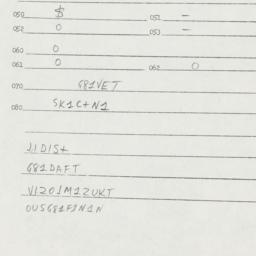 050 $ 051 -
052 0 053 -
060 0
061 0 062 0
070 G81VET
080 SK1C+N1
J1DIS+
G81DAFT
V1ZO1M1ZUKT
OUSG81F1N1N